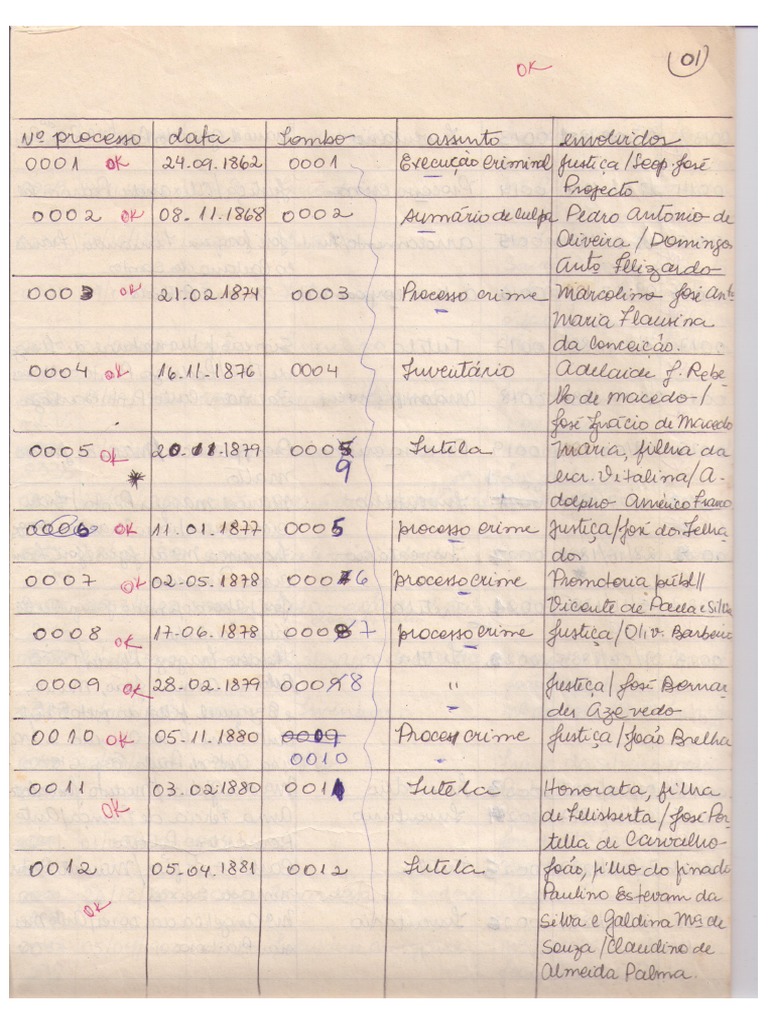 01
OK
Nº processo data Tombo assunto envolvidos
0001 OK 24.09.1862 0001 Execução Criminal Justiça/Leop. José
Projecto
0002 OK 08.11.1868 0002 Sumário de Culpa Pedro Antonio de
Oliveira/Domingos
Antº Felizardo
0003 OK 21.02.1874 0003 Processo crime Marcolino José Antº
Maria Flausina
da Conceição
0004 OK 16.11.1876 0004 Inventário Adelaide J. Rebe-
lo de Macedo/
José Ignácio de Macedo
0005 OK 20.11.1879 0005 Tutela Maria, filha da
* 9 escr. Vitalina/A-
dolpho Américo Franco
0006 OK 11.01.1877 0005 processo crime Justiça/José dos Telha
dos
0007 OK 02.05.1878 00076 processo crime Promotoria públ//
Vicente de Paula e Silva
0008 OK 17.06.1878 00087 processo crime Justiça/Oliv. Barbeiro
0009 OK 28.02.1879 00098 " Justiça/José Bernar
des Azevedo
0010 OK 05.11.1880 0009 Processo crime Justiça/João Brelha
0010
0011 OK 03.02.1880 0011 Tutela Honorata, filha
de Felisberta/José Por-
tella de Carvalho
0012 OK 05.04.1881 0012 Tutela João, filho do finado
Paulino Estevam da
Silva e Galdina Mª de
Souza/Claudino de
Almeida Palma.